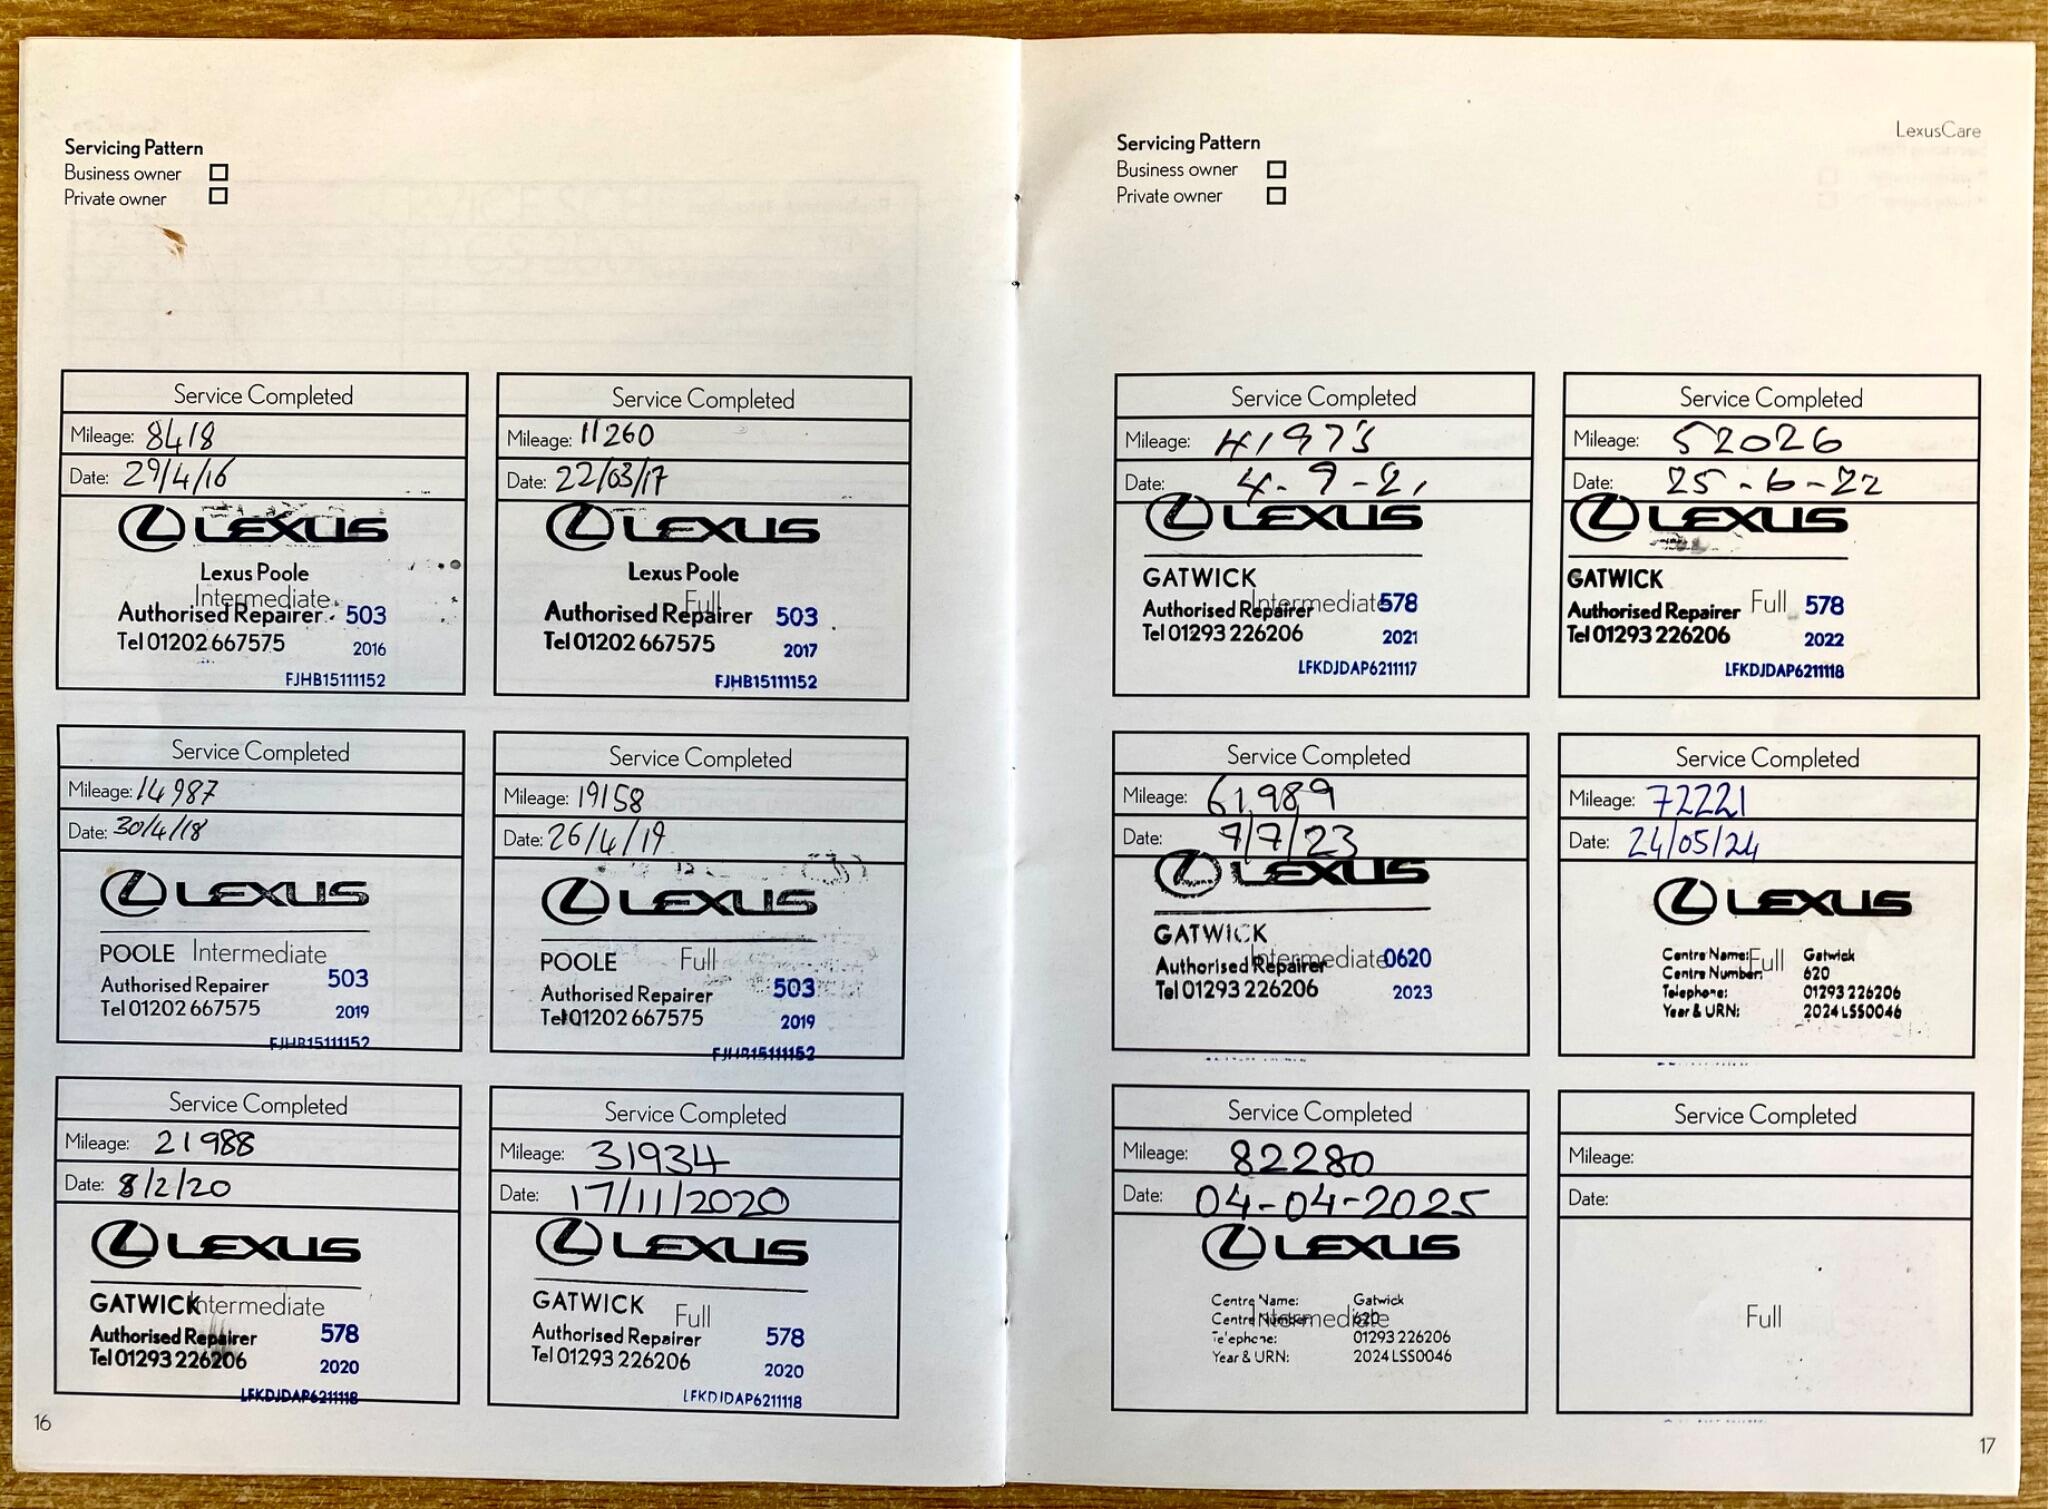 Servicing Pattern
Business owner
Private owner
Service Completed
Mileage: 8418
Date: 29/4/16
LEXUS
Lexus Poole
Intermediate
Authorised Repairer 503
Tel 01202 667575 2016
FJHB15111152
Service Completed
Mileage: 11260
Date: 22/03/17
LEXUS
Lexus Poole
Full
Authorised Repairer 503
Tel 01202 667575 2017
FJHB15111152
Service Completed
Mileage: 14987
Date: 30/4/18
LEXUS
POOLE Intermediate
Authorised Repairer 503
Tel 01202 667575 2019
FJHB15111152
Service Completed
Mileage: 19158
Date: 26/4/19
LEXUS
POOLE Full
Authorised Repairer 503
Tel 01202 667575 2019
FJHB15111152
Service Completed
Mileage: 21988
Date: 8/2/20
LEXUS
GATWICK Intermediate
Authorised Repairer 578
Tel 01293 226206 2020
LFKDJDAP6211118
Service Completed
Mileage: 31934
Date: 17/11/2020
LEXUS
GATWICK Full
Authorised Repairer 578
Tel 01293 226206 2020
LFKDJDAP6211118
16
LexusCare
Servicing Pattern
Business owner
Private owner
Service Completed
Mileage: 41973
Date: 4-9-21
LEXUS
GATWICK
Authorised Repairer Intermediate 578
Tel 01293 226206 2021
LFKDJDAP6211117
Service Completed
Mileage: 52026
Date: 25-6-22
LEXUS
GATWICK
Authorised Repairer Full 578
Tel 01293 226206 2022
LFKDJDAP6211118
Service Completed
Mileage: 61989
Date: 7/7/23
LEXUS
GATWICK
Authorised Repairer Intermediate 0620
Tel 01293 226206 2023
Service Completed
Mileage: 72221
Date: 24/05/24
LEXUS
Centre Name: Full Gatwick
Centre Number: 620
Telephone: 01293 226206
Year & URN: 2024 LSS0046
Service Completed
Mileage: 82280
Date: 04-04-2025
LEXUS
Centre Name: Gatwick
Centre Number: Intermediate 620
Telephone: 01293 226206
Year & URN: 2024 LSS0046
Service Completed
Mileage:
Date:
Full
17